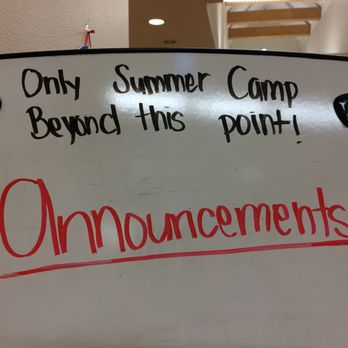 Only Summer Camp
Beyond this point!
Announcements